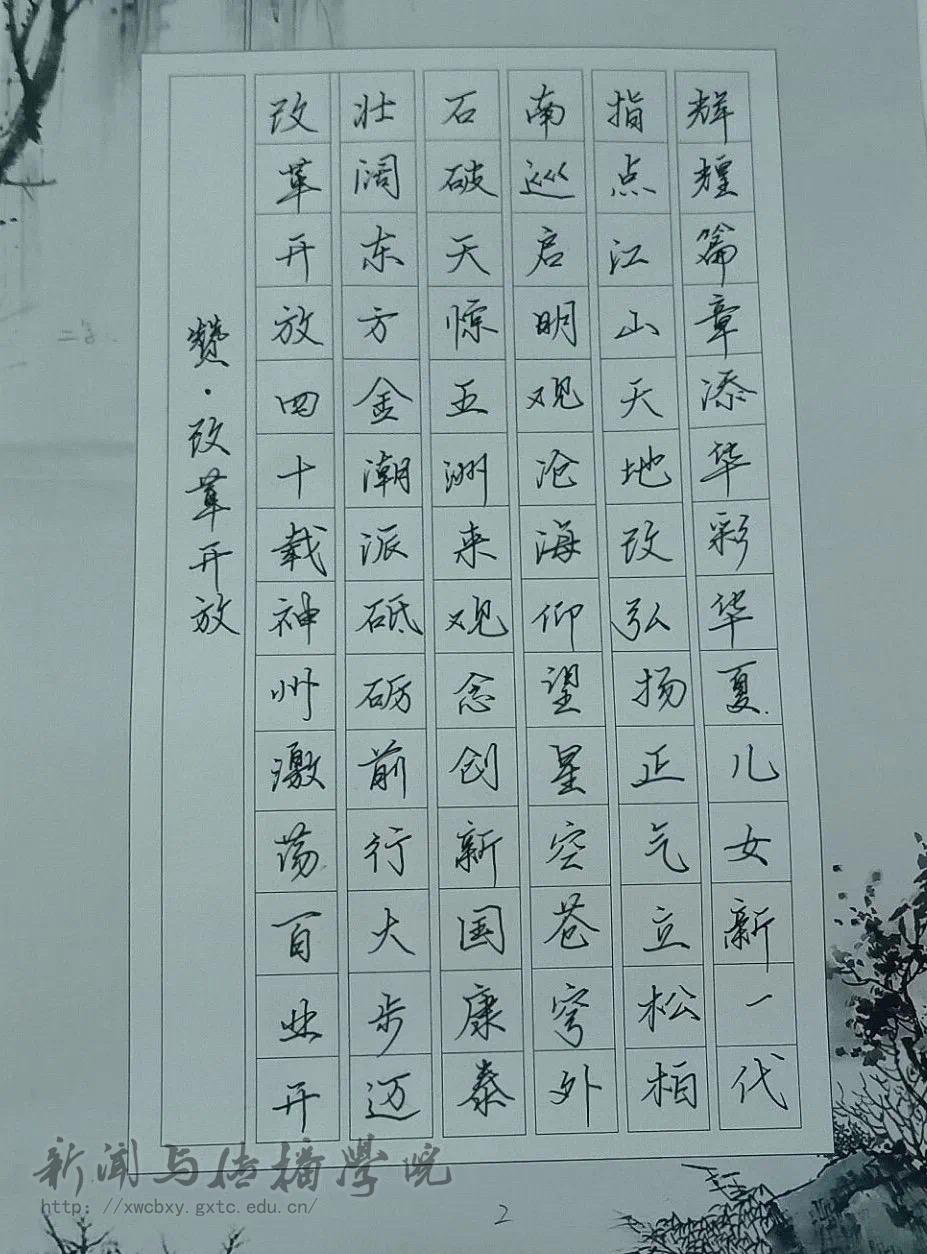 赞·改革开放
改革开放四十载神州激荡百业开
壮阔东方金潮派砥砺前行大步迈
石破天惊五洲来观念创新国康泰
南巡启明观沧海仰望星空苍穹外
指点江山天地改弘扬正气立松柏
辉煌篇章添华彩华夏儿女新一代
2
新闻与传播学院
http://xwcbxy.gxtc.edu.cn/